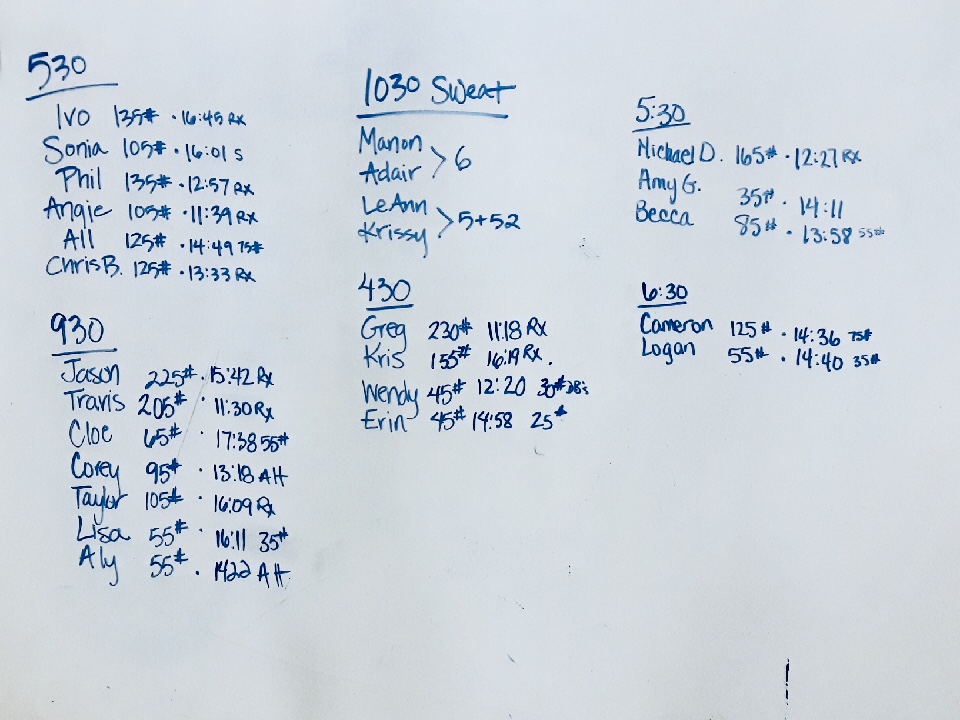 530
Ivo 135# · 16:45 Rx
Sonia 105# · 16:01 S
Phil 135# · 12:57 Rx
Angie 105# · 11:39 Rx
Ali 125# · 14:49 75#
Chris B. 125# · 13:33 Rx
930
Jason 225# · 15:42 Rx
Travis 205# · 11:30 Rx
Cloe 65# · 17:38 55#
Corey 95# · 13:18 AH
Taylor 105# · 16:09 Rx
Lisa 55# · 16:11 35#
Aly 55# · 1422 AH
1030 Sweat
Manon
Adair > 6
LeAnn
Krissy > 5+52
430
Greg 230# 11:18 Rx
Kris 155# 16:19 Rx .
Wendy 45# 12:20 30#
Erin 45# 14:58 25#
5:30
Michael D. 165# · 12:27 Rx
Amy G. 35# · 14:11
Becca 85# · 13:58 55#
6:30
Cameron 125# · 14:36 75#
Logan 55# · 14:40 35#